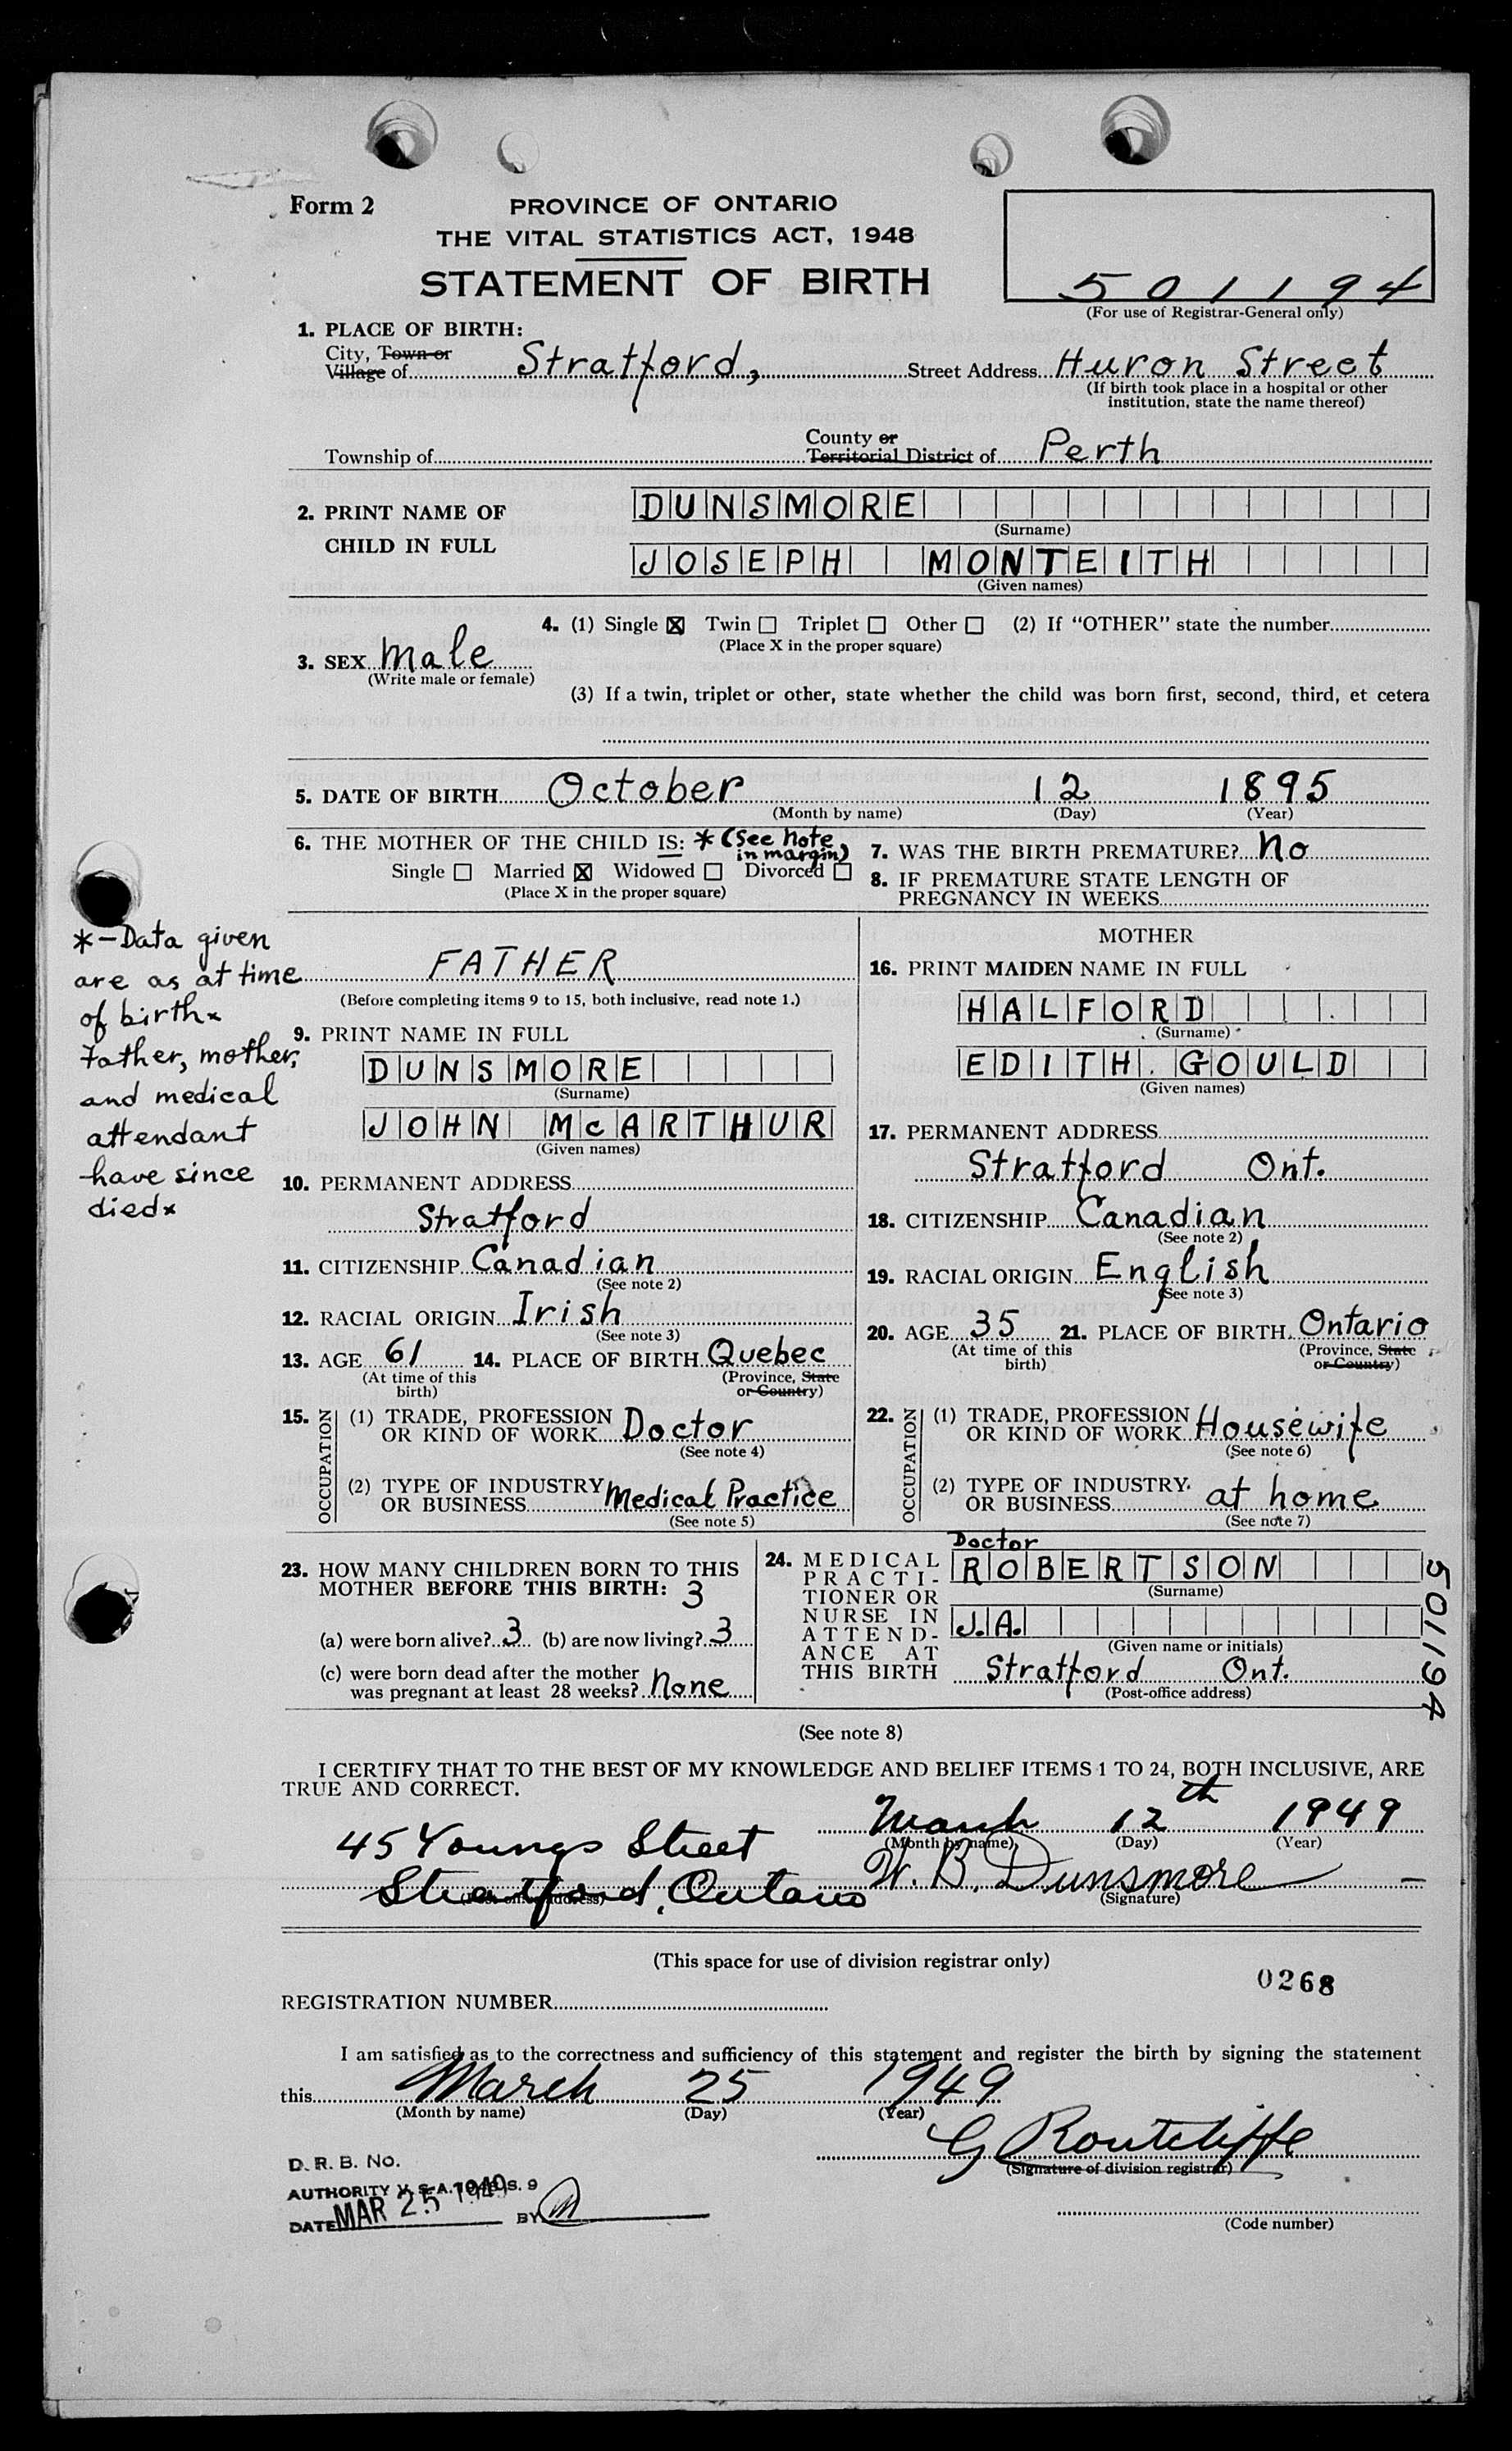 Form 2
PROVINCE OF ONTARIO
THE VITAL STATISTICS ACT, 1948
STATEMENT OF BIRTH
501194
(For use of Registrar-General only)
1. PLACE OF BIRTH:
City, Town or
Village of Stratford, Street Address Huron Street
(If birth took place in a hospital or other
institution, state the name thereof)
Township of County or
Territorial District of Perth
2. PRINT NAME OF
CHILD IN FULL
DUNSMORE
(Surname)
JOSEPH MONTEITH
(Given names)
3. SEX Male
(Write male or female)
4. (1) Single ☒ Twin ☐ Triplet ☐ Other ☐ (2) If "OTHER" state the number
(Place X in the proper square)
(3) If a twin, triplet or other, state whether the child was born first, second, third, et cetera
5. DATE OF BIRTH October 12 1895
(Month by name) (Day) (Year)
6. THE MOTHER OF THE CHILD IS: * (See note
in margin)
Single ☐ Married ☒ Widowed ☐ Divorced ☐
(Place X in the proper square)
7. WAS THE BIRTH PREMATURE? No
8. IF PREMATURE STATE LENGTH OF
PREGNANCY IN WEEKS
*-Data given
are as at time
of birth.
Father, mother,
and medical
attendant
have since
died.
FATHER
(Before completing items 9 to 15, both inclusive, read note 1.)
9. PRINT NAME IN FULL
DUNSMORE
(Surname)
JOHN McARTHUR
(Given names)
10. PERMANENT ADDRESS
Stratford
11. CITIZENSHIP Canadian
(See note 2)
12. RACIAL ORIGIN Irish
(See note 3)
13. AGE 61 14. PLACE OF BIRTH Quebec
(At time of this
birth)
(Province, State
or Country)
15. OCCUPATION
(1) TRADE, PROFESSION
OR KIND OF WORK Doctor
(See note 4)
(2) TYPE OF INDUSTRY
OR BUSINESS Medical Practice
(See note 5)
MOTHER
16. PRINT MAIDEN NAME IN FULL
HALFORD
(Surname)
EDITH. GOULD
(Given names)
17. PERMANENT ADDRESS
Stratford Ont.
18. CITIZENSHIP Canadian
(See note 2)
19. RACIAL ORIGIN English
(See note 3)
20. AGE 35 21. PLACE OF BIRTH Ontario
(At time of this
birth)
(Province, State
or Country)
22. OCCUPATION
(1) TRADE, PROFESSION
OR KIND OF WORK Housewife
(See note 6)
(2) TYPE OF INDUSTRY
OR BUSINESS at home
(See note 7)
23. HOW MANY CHILDREN BORN TO THIS
MOTHER BEFORE THIS BIRTH: 3
(a) were born alive? 3 (b) are now living? 3
(c) were born dead after the mother
was pregnant at least 28 weeks? None
24. MEDICAL
PRACTI-
TIONER OR
NURSE IN
ATTEND-
ANCE AT
THIS BIRTH
Doctor
ROBERTSON
(Surname)
J.A.
(Given name or initials)
Stratford Ont.
(Post-office address)
501194
(See note 8)
I CERTIFY THAT TO THE BEST OF MY KNOWLEDGE AND BELIEF ITEMS 1 TO 24, BOTH INCLUSIVE, ARE
TRUE AND CORRECT.
March 12th 1949
(Month by name) (Day) (Year)
45 Youngs Street
Stratford, Ontario W. B. Dunsmore
(Post-office address) (Signature)
(This space for use of division registrar only)
0268
REGISTRATION NUMBER
I am satisfied as to the correctness and sufficiency of this statement and register the birth by signing the statement
this March 25 1949
(Month by name) (Day) (Year)
G Routcliffe
(Signature of division registrar)
D. R. B. No.
AUTHORITY V. S. A. 1948 S. 9
DATE MAR 25 1949 BY
(Code number)